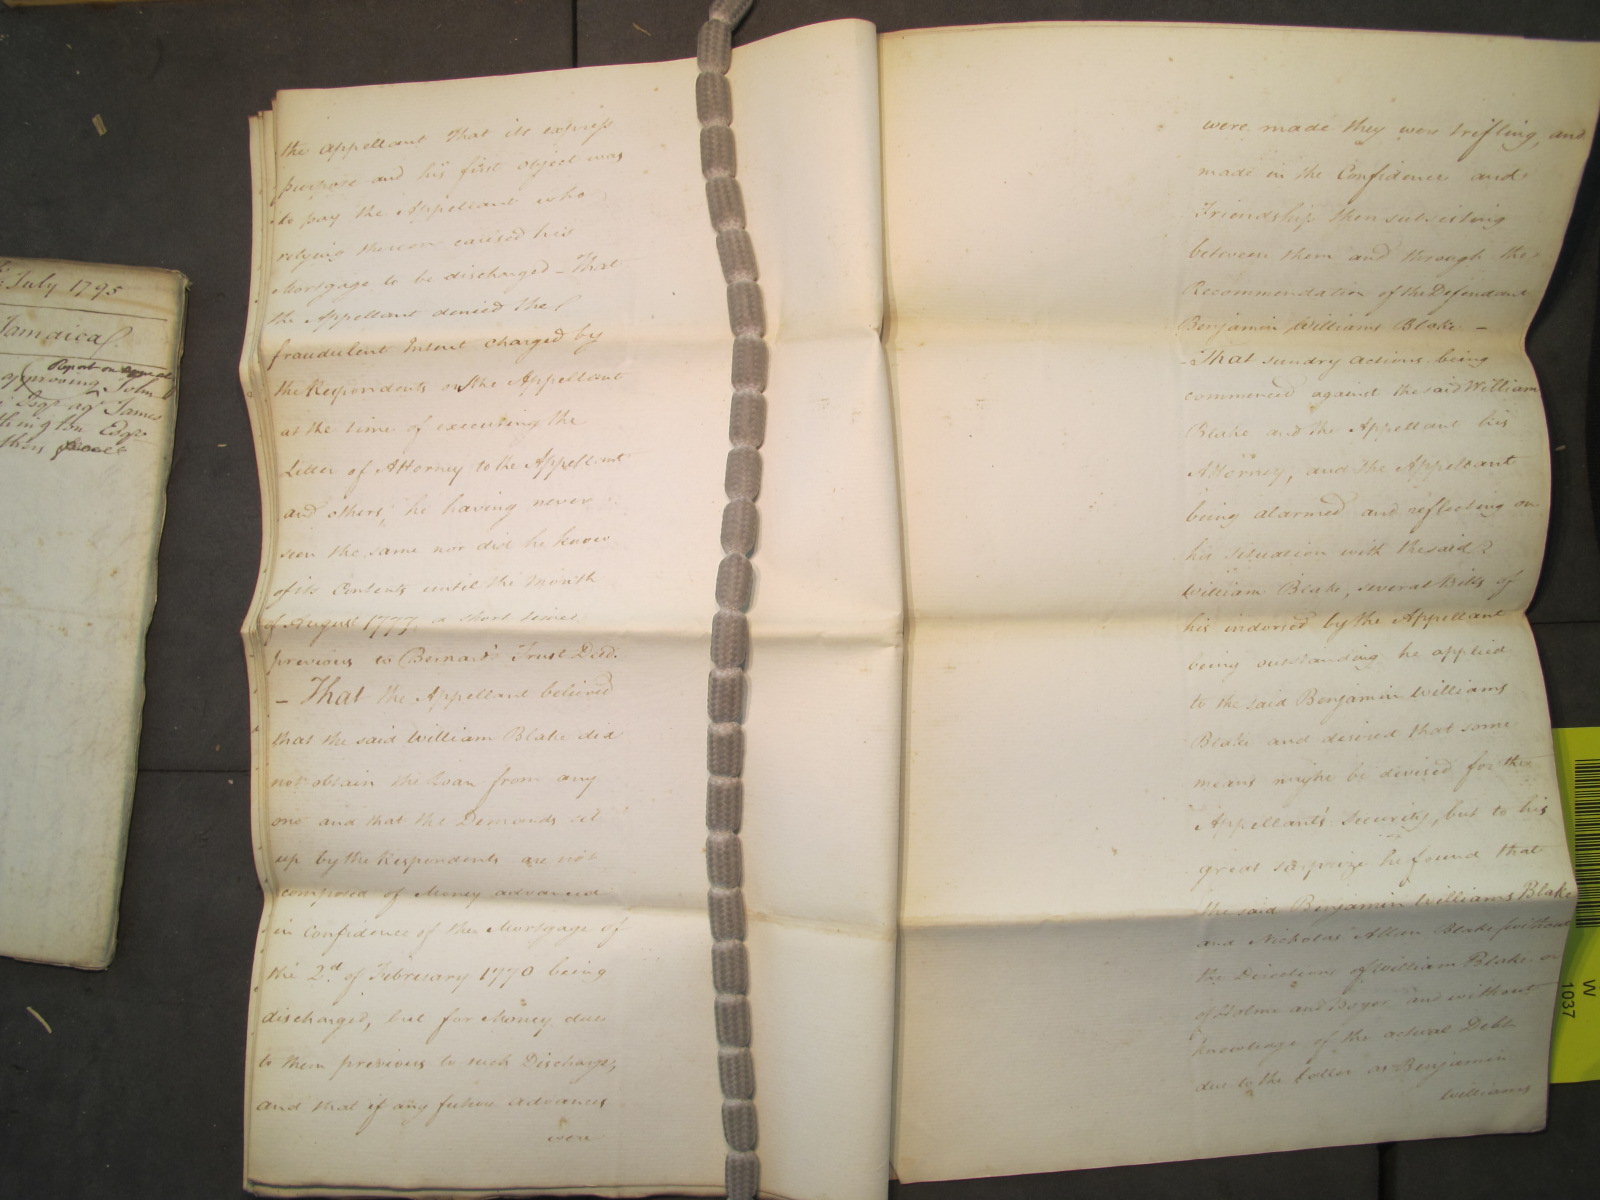 July 1795
Jamaica
Report on appeal
approving John
Esqr agt James
Esqr
others
the Appellant That its express
purpose and his first object was
to pay the Appellant who
relying thereon caused his
Mortgage to be discharged – That
the Appellant denied the
fraudulent Intent charged by
the Respondents on the Appellant
at the time of executing the
Letter of Attorney to the Appellant
and others, he having never
seen the same nor did he know
of its Contents until the Month
of August 1777 a short time
previous to Bernard's Trust Deed.
– That the Appellant believed
that the said William Blake did
not obtain the Loan from any
one and that the Demands set
up by the Respondents are not
composed of Money advanced
in Confidence of the Mortgage of
the 2d of February 1770 being
discharged, but for Money due
to them previous to such Discharge,
and that if any future advances
were
were made they were trifling, and
made in the Confidence and
Friendship then subsisting
between them and through the
Recommendation of the Defendant
Benjamin Williams Blake –
– That sundry Actions being
commenced against the said William
Blake and the Appellant his
Attorney, and the Appellant
being alarmed and reflecting on
his situation with the said
William Blake, several Bills of
his indorsed by the Appellant
being outstanding he applied
to the said Benjamin Williams
Blake and desired that some
means might be devised for the
Appellant's Security, but to his
great surprize he found that
the said Benjamin Williams Blake
and Nicholas Allan Blake (without
the Directions of William Blake or
of Holme and Boyer and without
knowledge of the actual Debt
due to the latter or Benjamin
Williams
W
1037